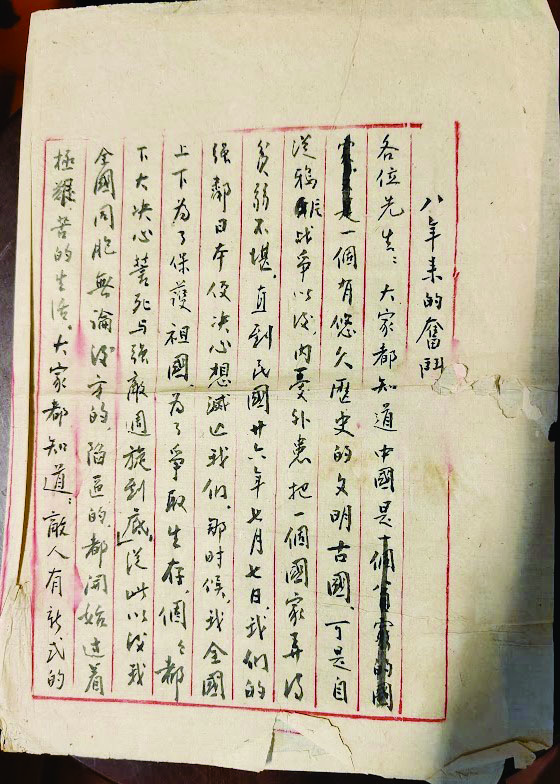 八年来的奮鬥
各位先生：大家都知道中國是
一個有悠久歷史的文明古國，可是自
從鴉片战争以後，内憂外患把一個國家弄得
貧弱不堪，直到民國廿六年七月七日，我們的
强鄰日本便决心想滅亡我們，那时候，我全國
上下为了保護祖國，为了爭取生存，個々都
下大决心誓死与强敵週旋到底」從此以後我
全國同胞無論後方的，陷區的，都開始过着
極艱苦的生活，大家都知道：敵人有新式的